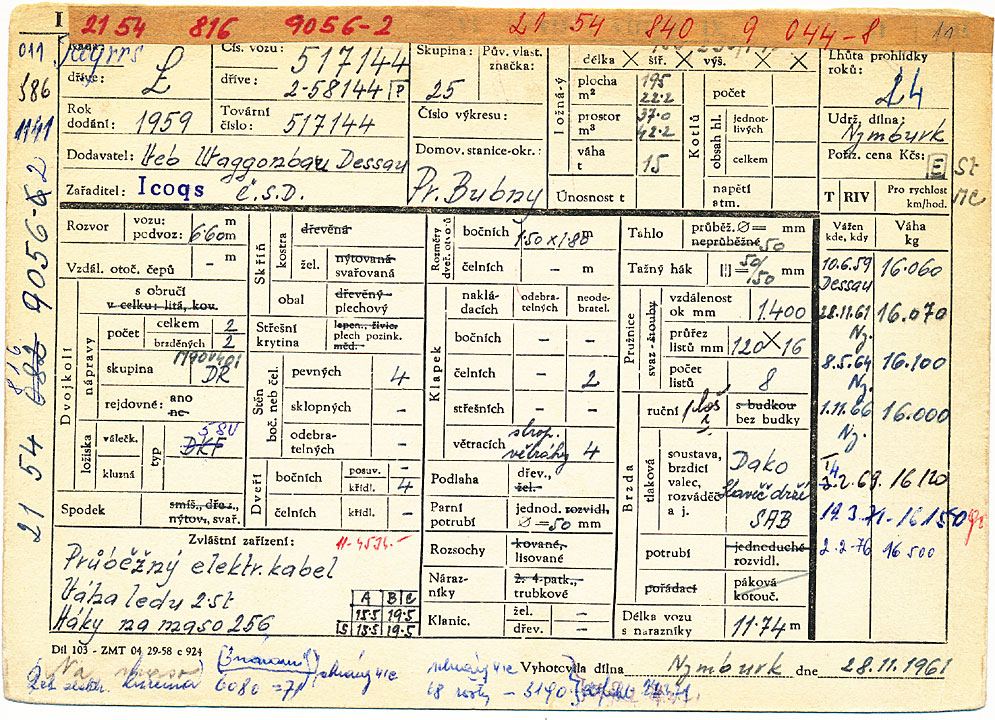 I 21 54 816 9056-2 21 54 840 9 044-8 11
011
586
1141
21 54 9056-2
816
Řada:
dříve: Z
Čís. vozu: 517144
dříve: 2-58144 P
Skupina: 25
Pův. vlast. značka:
Rok dodání: 1959
Tovární číslo: 517144
Číslo výkresu:
Dodavatel: Veb Waggonbau Dessau
Domov. stanice-okr.: Pr. Bubny
Zařaditel: Icoqs Č.S.D.
Ložná-ý
délka šíř. výš.
plocha m² 19.5 22.2
prostor m³ 37.0 42.2
váha t 15
Únosnost t
Kotlů
počet
obsah hl. jednotlivých
celkem
napětí atm.
Lhůta prohlídky roků: 4
Udrž. dílna: Nymburk
Poříz. cena Kčs: E St
T RIV Pro rychlost km/hod.
Rozvor vozu: m
podvoz: 6.60 m
Vzdál. otoč. čepů - m
Dvojkolí
s obručí
v celku: litá, kov.
nápravy
počet celkem 2
brzděných 2
skupina DR
rejdovné: ano
ne
ložiska
válečk.
kluzná
typ 5 SV
DKF
Spodek smíš., dřev.,
nýtov., svař.
Skříň
kostra dřevěná
žel. nýtovaná
svařovaná
obal dřevěný
plechový
Střešní krytina lepen., živic.
plech pozink.
měď.
Stěn boč. neb čel.
pevných 4
sklopných -
odebratelných -
Dveří
bočních posuv. -
křídl. 4
čelních křídl. -
Rozměry dveř. otvorů
bočních 1.50 x 1.80 m
čelních - m
Klapek
nakládacích odebratelných neodebratel.
bočních - -
čelních - 2
střešních - -
větracích strop. větráky 4
Podlaha dřev., -
žel.
Parní potrubí jednod. rozvidl.
∅=50 mm
Rozsochy kované,
lisované
Nárazníky 2. 4-patk.,
trubkové
Klanic. žel. -
dřev. -
Táhlo průběž. ∅= mm
neprůběžné 50
Tažný hák 50/50 mm
Pružnice
svaz. šrouby
vzdálenost ok mm 1.400
průřez listů mm 120 X 16
počet listů 8
Brzda
ruční s budkou
bez budky
tlaková
soustava, brzdicí válec, rozváděč a j. Dako
SAB
potrubí jednoduché
rozvidl.
pořádací páková
kotouč.
Délka vozu s narazníky 11.74 m
Vážen kde, kdy Váha kg
10.6.59 Dessau 16.060
28.11.61 Ny. 16.070
8.5.64 Ny. 16.100
1.11.66 Ny. 16.000
2.69. 16 120
19.3.71 - 16150
2.2-76 16 500
Zvláštní zařízení: 11-4534.-
Průběžný elektr. kabel
Váha ledu 2.5t
Háky na maso 256
A B C
15.5 19.5
S 15.5 19.5
Díl 103 - ZMT 04 29-58 c 924
Vyhotovila dílna Nymburk dne 28.11.1961